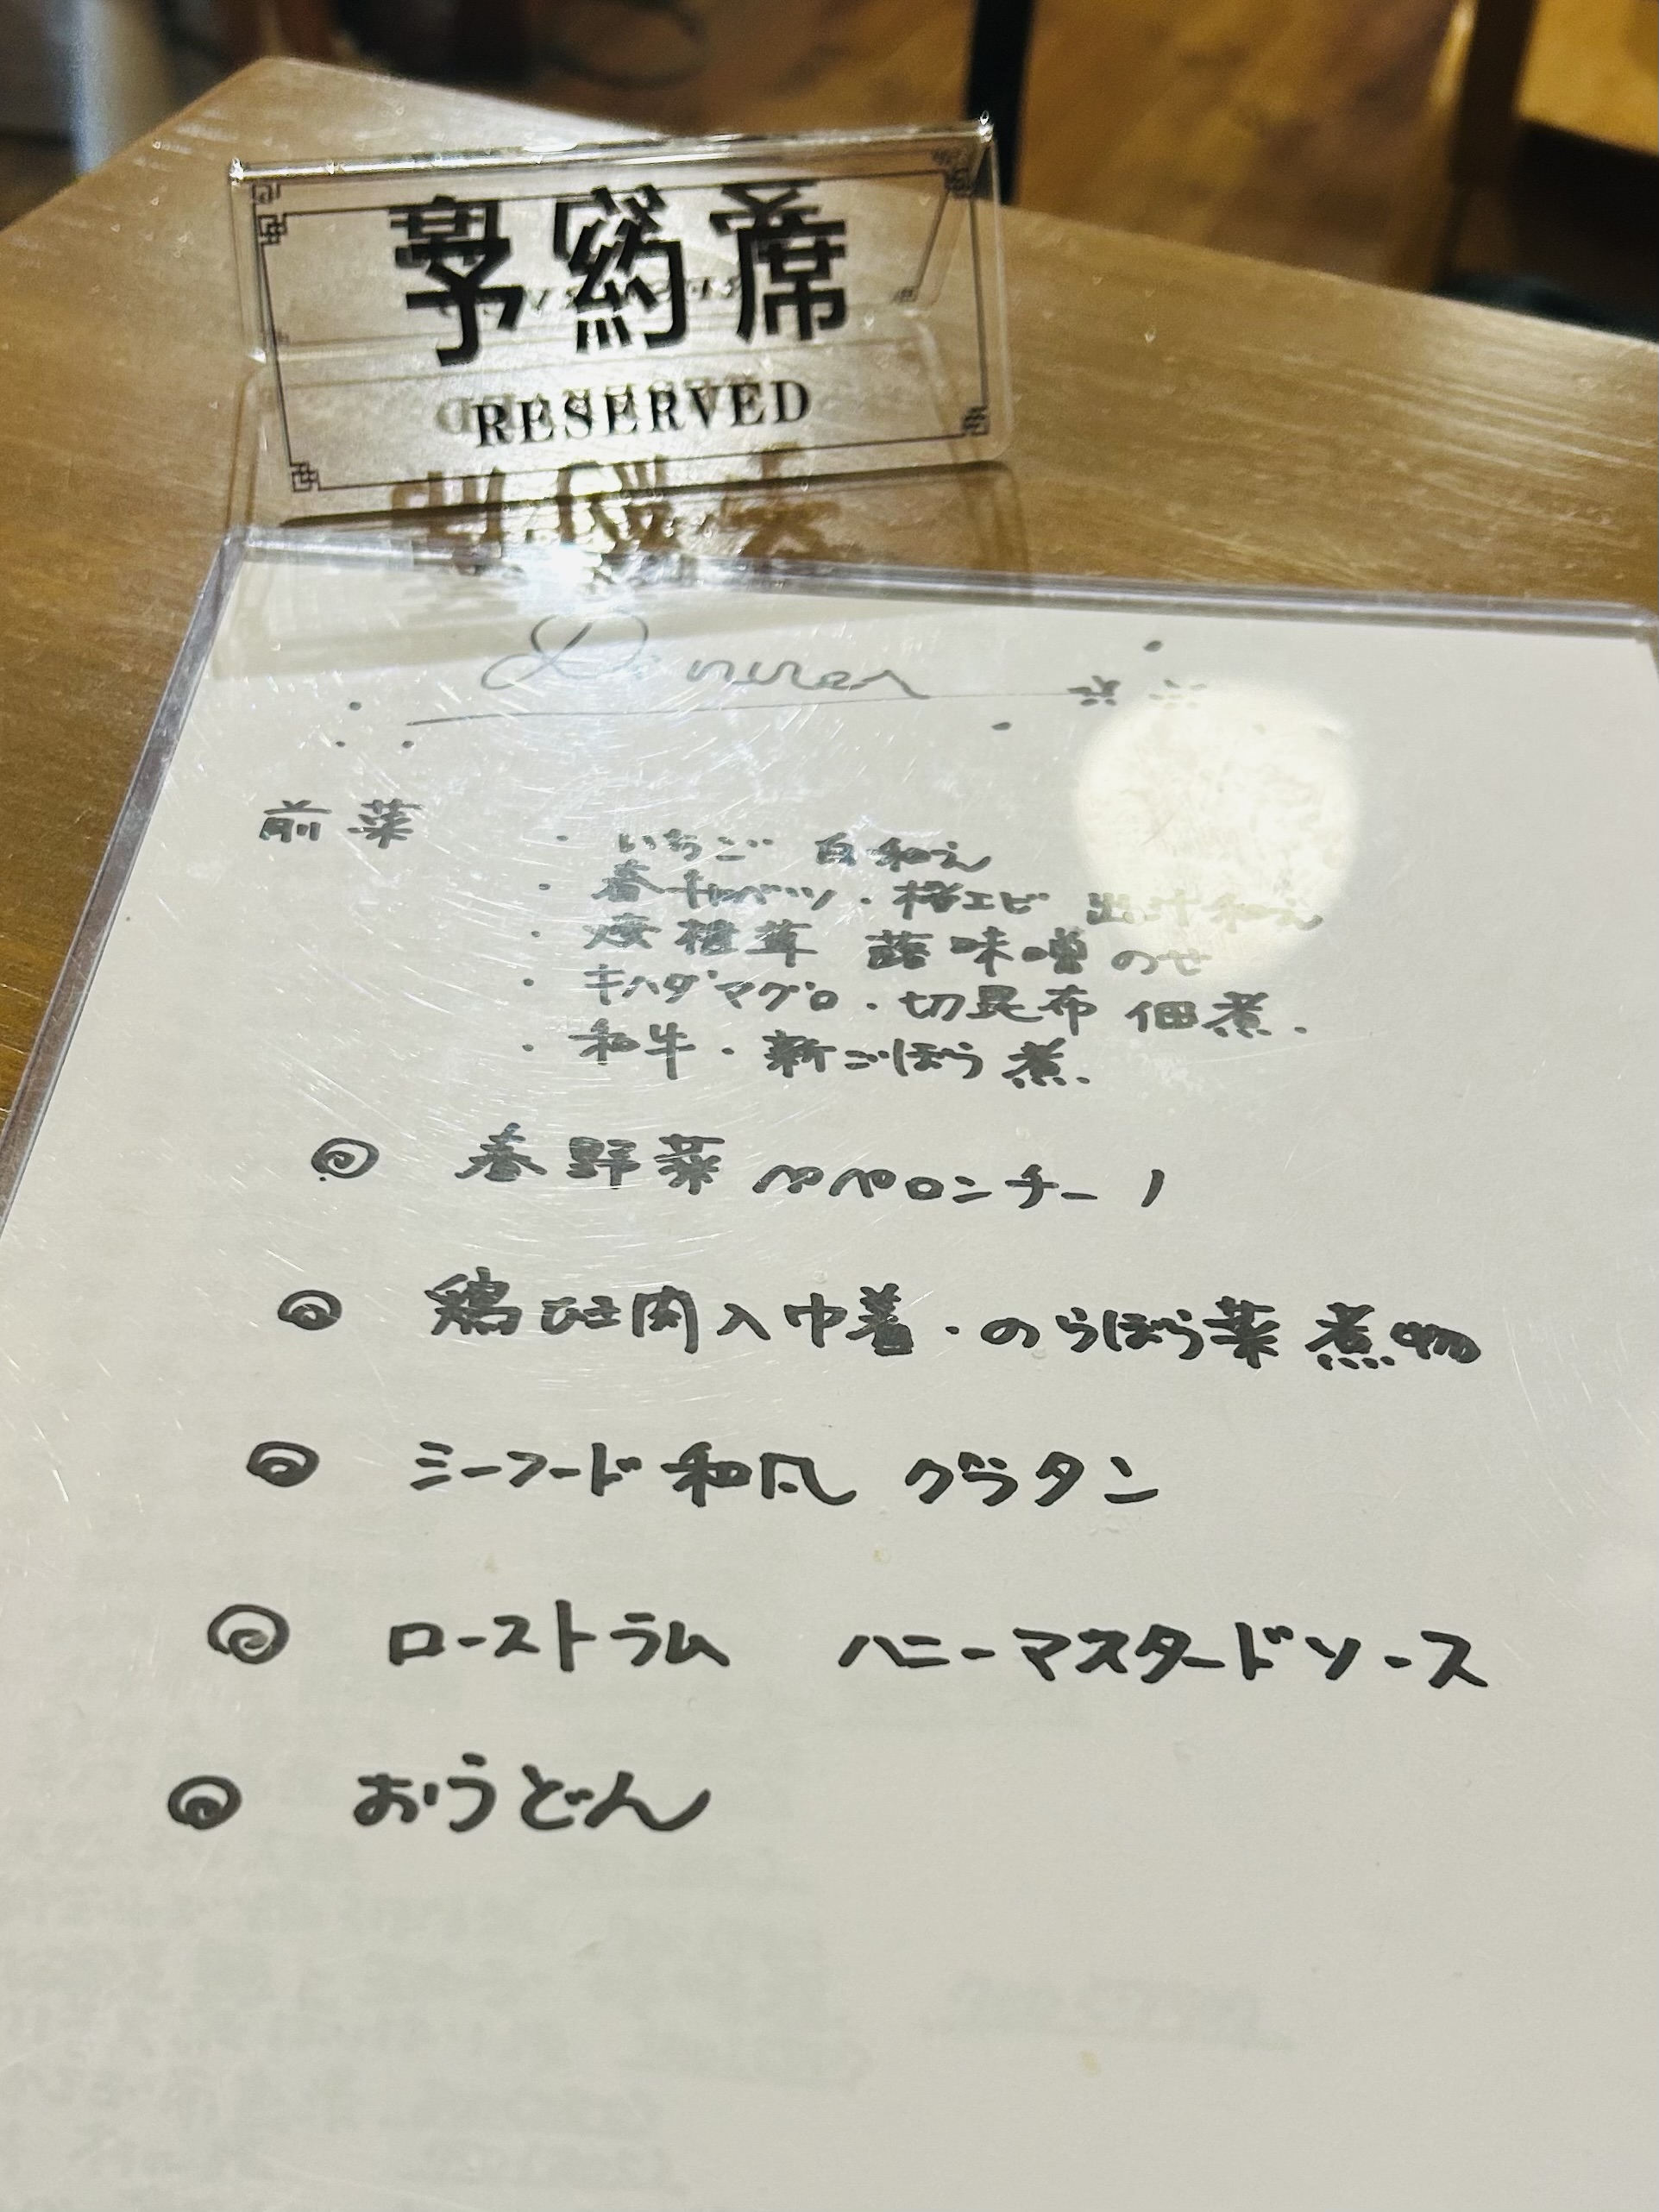 予約席
RESERVED
Dinner
前菜
・いちご 白和え
・春キャベツ・桜エビ 出汁和え
・焼椎茸 蕗味噌のせ
・キハダマグロ・切昆布 佃煮.
・和牛・新ごぼう煮.
◎ 春野菜ペペロンチーノ
◎ 鶏ひき肉入巾着・のらぼう菜煮物
◎ シーフード和風 グラタン
◎ ローストラム ハニーマスタードソース
◎ おうどん